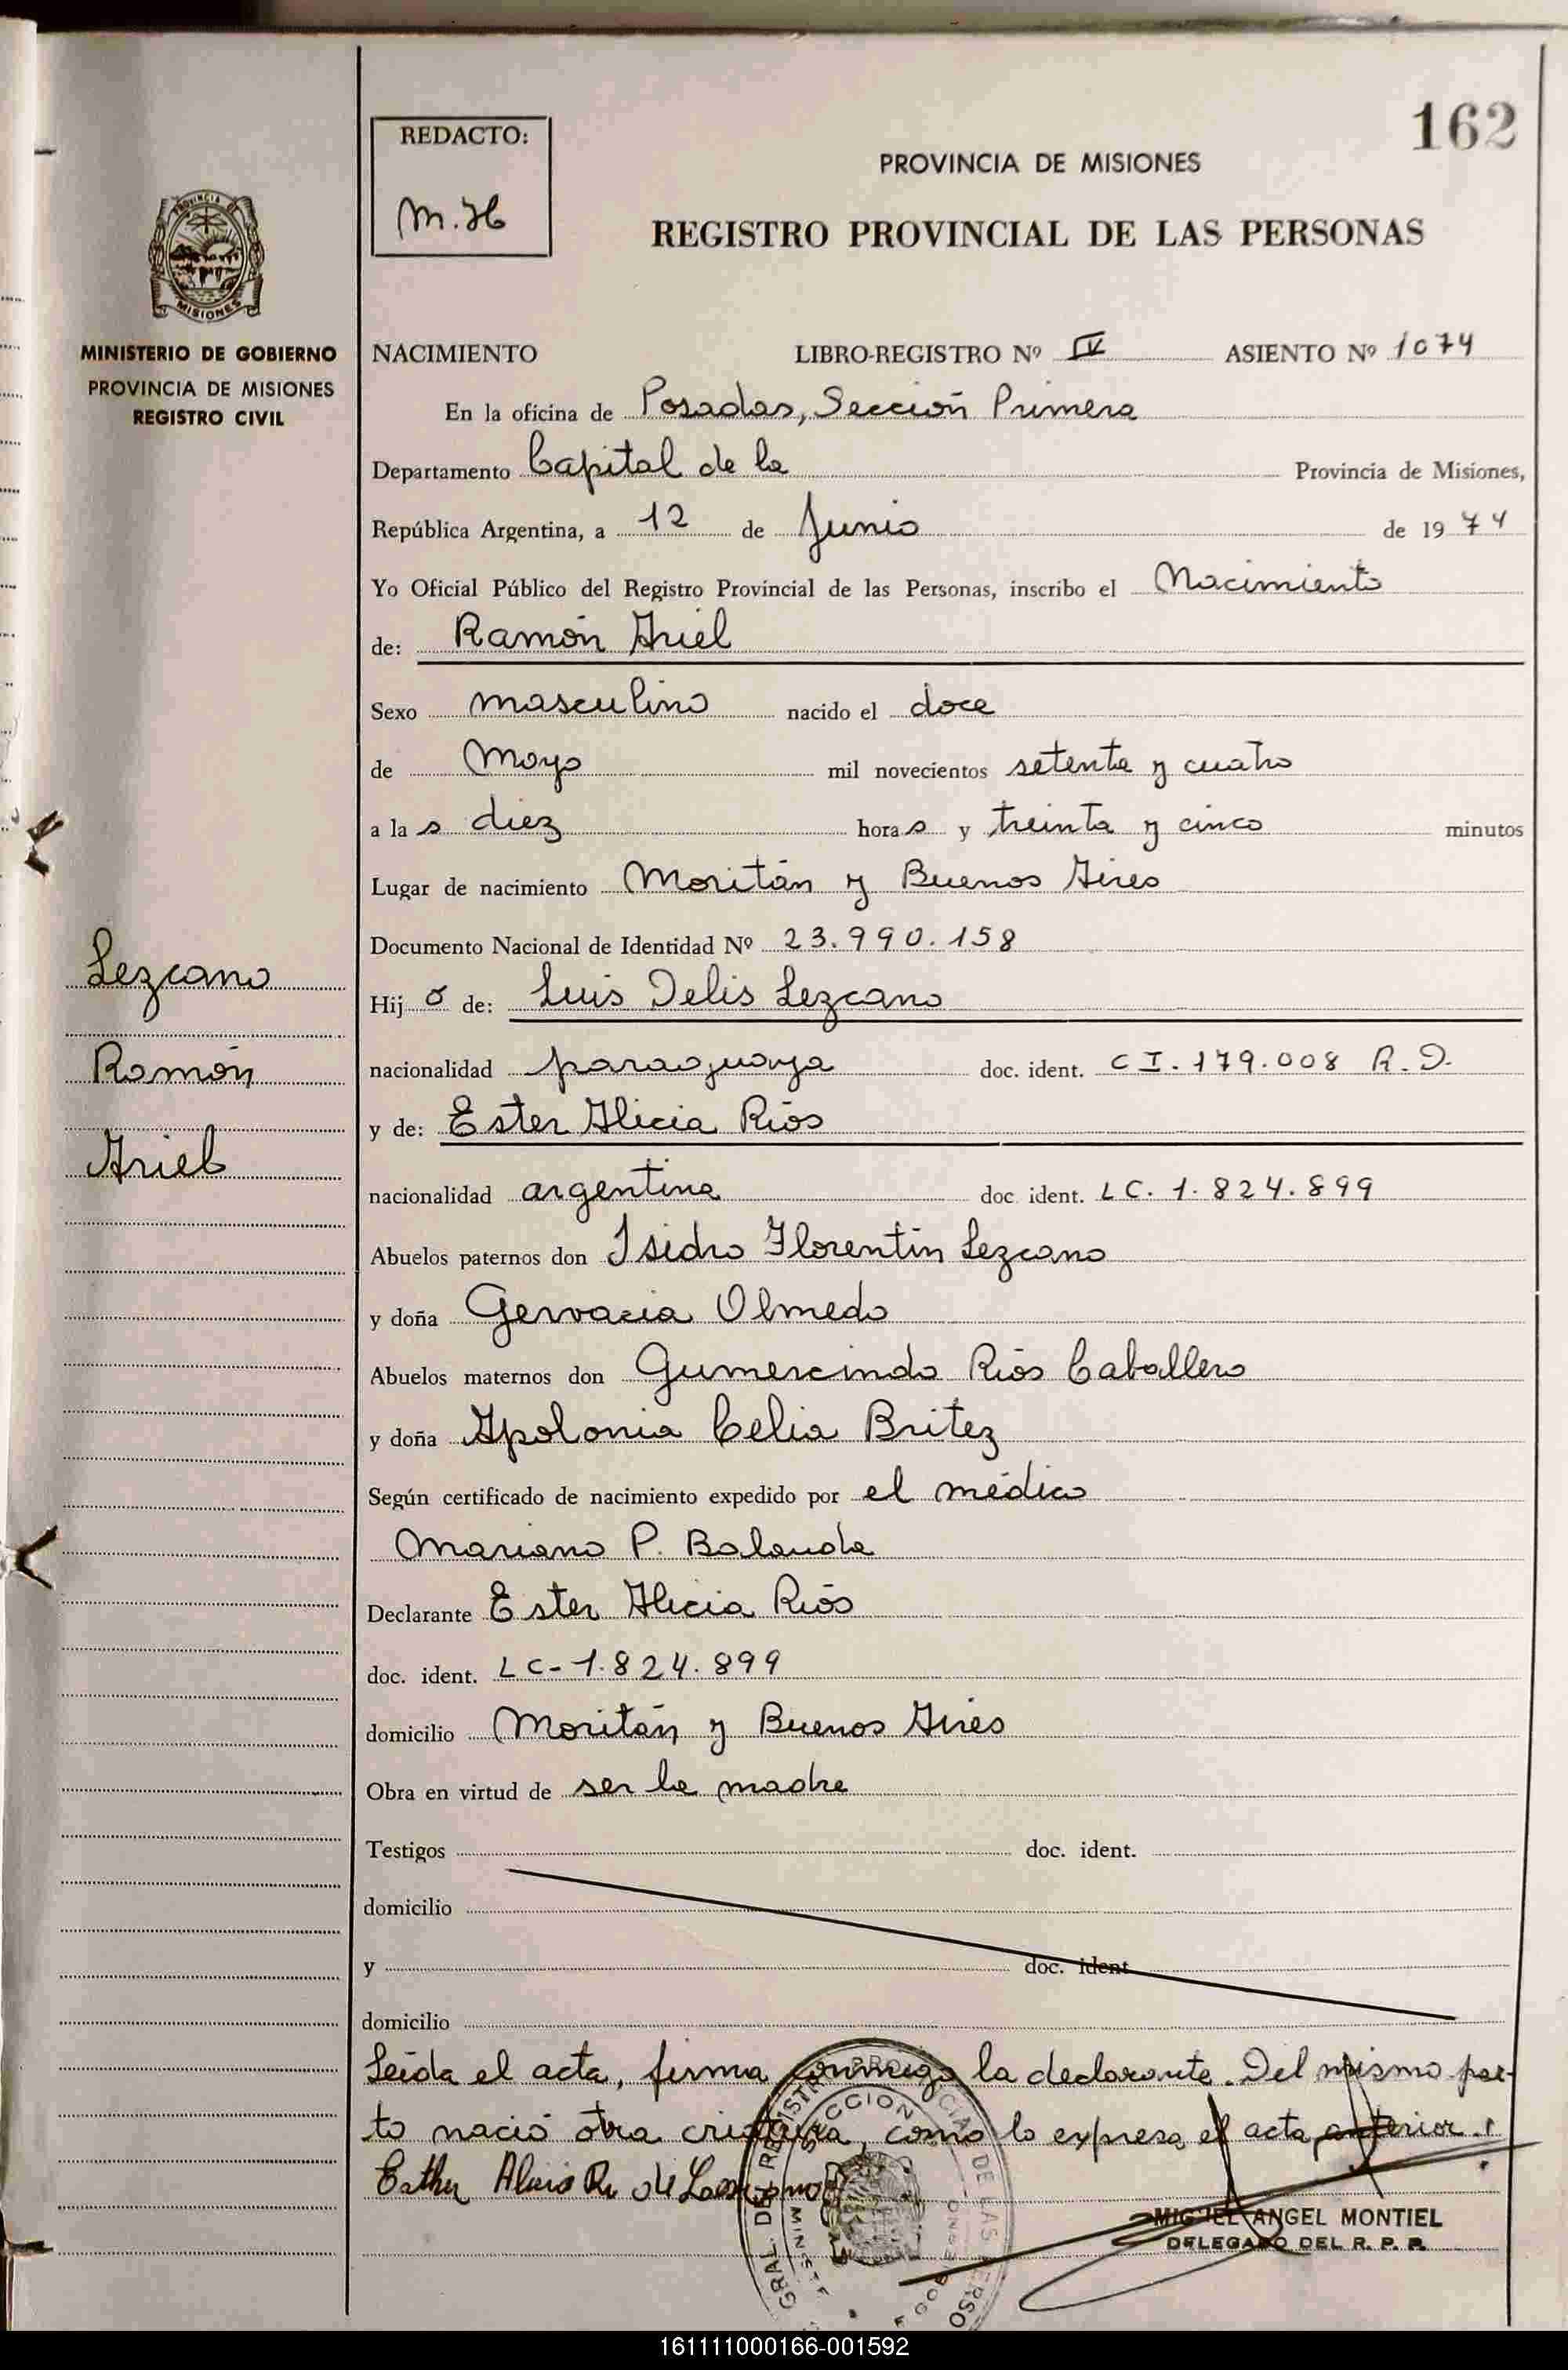 162
REDACTO:
M.H
PROVINCIA DE MISIONES
REGISTRO PROVINCIAL DE LAS PERSONAS
PROVINCIA DE
MISIONES
MINISTERIO DE GOBIERNO
PROVINCIA DE MISIONES
REGISTRO CIVIL
NACIMIENTO LIBRO-REGISTRO Nº IV ASIENTO Nº 1074
En la oficina de Posadas, Sección Primera
Departamento Capital de la Provincia de Misiones,
República Argentina, a 12 de Junio de 1974
Yo Oficial Público del Registro Provincial de las Personas, inscribo el Nacimiento
de: Ramón Ariel
Sexo masculino nacido el doce
de Mayo mil novecientos setenta y cuatro
a las diez horas y treinta y cinco minutos
Lugar de nacimiento Moritán y Buenos Aires
Documento Nacional de Identidad Nº 23.990.158
Hijo de: Luis Delis Lezcano
nacionalidad paraguaya doc. ident. CI. 179.008 R.D.
y de: Ester Alicia Ríos
nacionalidad argentina doc. ident. LC. 1.824.899
Abuelos paternos don Isidro Florentín Lezcano
y doña Gervacia Olmedo
Abuelos maternos don Gumercindo Ríos Caballero
y doña Apolonia Celia Britez
Según certificado de nacimiento expedido por el médico
Mariano P. Balauda
Declarante Ester Alicia Ríos
doc. ident. LC-1.824.899
domicilio Moritán y Buenos Aires
Obra en virtud de ser la madre
Testigos doc. ident.
domicilio
y doc. ident.
domicilio
Leída el acta, firma conmigo la declarante. Del mismo par-
to nació otra criatura, como lo expresa el acta anterior.
Esther Alicia R. de Lezcano
MIGUEL ANGEL MONTIEL
DELEGADO DEL R. P. P.
Lezcano
Ramón
Ariel
161111000166-001592